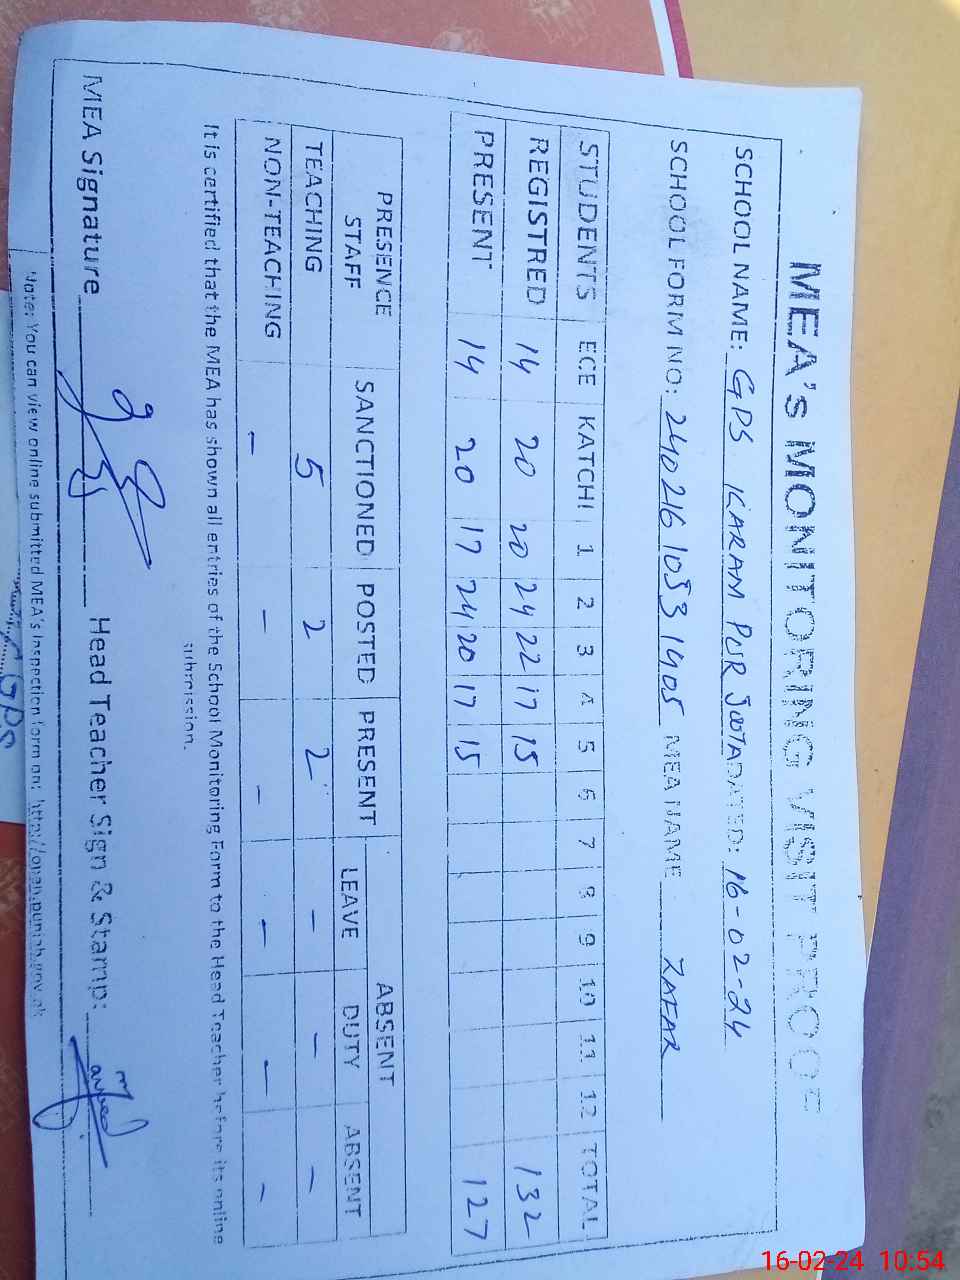 MEA's MONITORING VISIT PROOF
SCHOOL NAME: GPS KARAM PUR JOOTA DATED: 16-02-24
SCHOOL FORM NO: MEA NAME ZAFAR
STUDENTS ECE KATCHI 1 2 3 4 5 6 7 8 9 10 11 12 TOTAL
REGISTRED 14 20 20 24 22 17 15 132
PRESENT 14 20 17 24 20 17 15 127
PRESENCE STAFF SANCTIONED POSTED PRESENT ABSENT
LEAVE DUTY ABSENT
TEACHING 5 2 2 - - -
NON-TEACHING - - - - - -
It is certified that the MEA has shown all entries of the School Monitoring Form to the Head Teacher before its online
submission.
MEA Signature Head Teacher Sign & Stamp:
Note: You can view online submitted MEA's Inspection form on: http://open.punjab.gov.pk
GPS
16-02-24 10:54